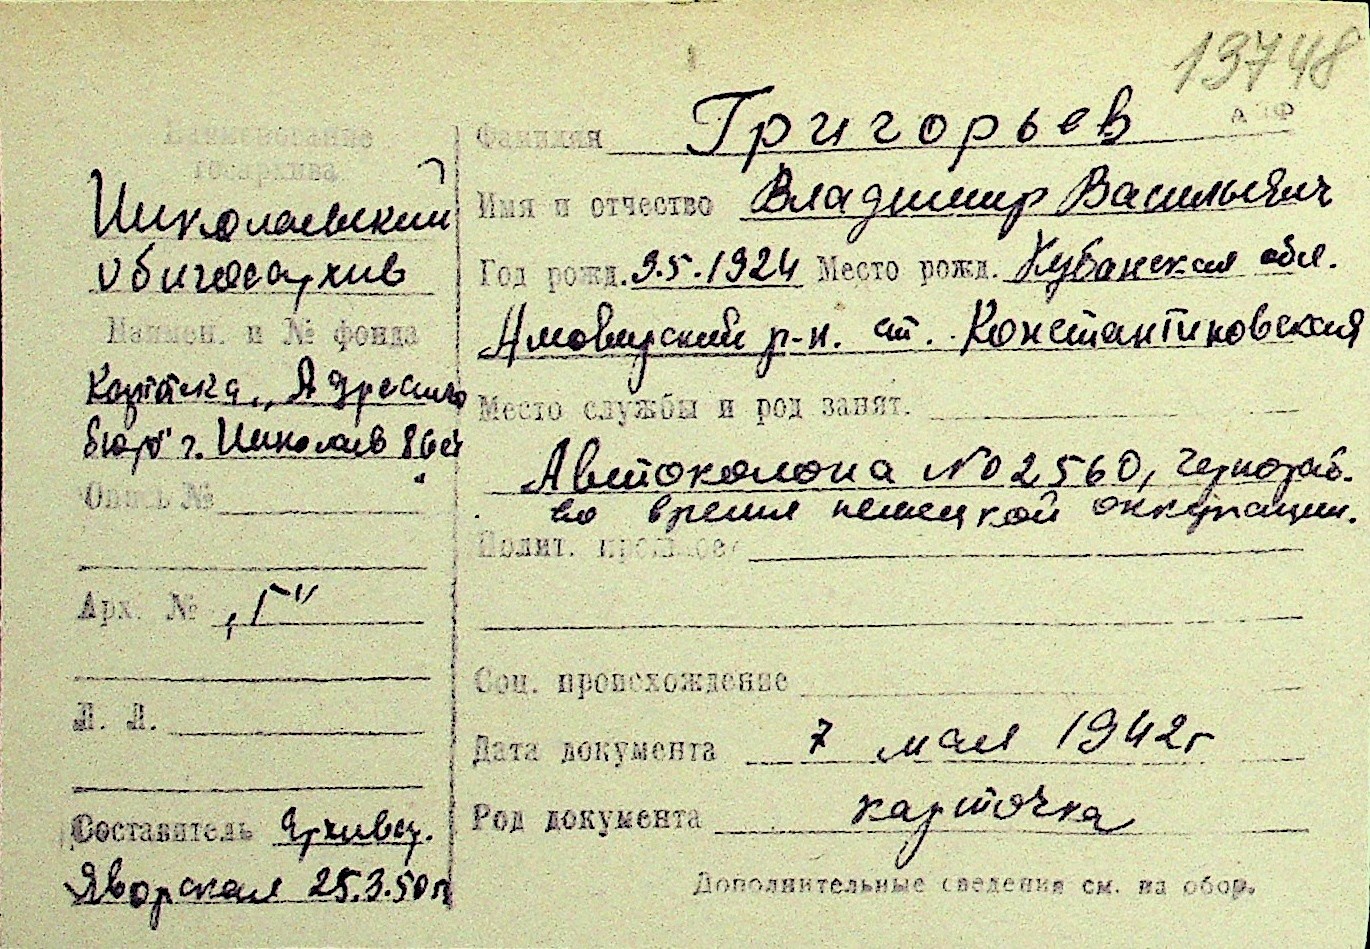 13748
Наименование
Госархива
Николаевский
облгосархив
Наимен. и № фонда
Картотека „Адресного
бюро" г. Николаев
Опись №
Арх. № „Г"
Л. Л.
Составитель Архивар.
Яворская 25.3.50 г
Фамилия Григорьев
Имя и отчество Владимир Васильевич
Год рожд. 9.5.1924 Место рожд. Кубанская обл.
р-н. ст. Константиновская
Место службы и род занят.
Автоколона № 2560, чернораб.
во время немецкой оккупации.
Полит. прошлое
Соц. происхождение
Дата документа 7 мая 1942г
Род документа карточка
Дополнительные сведения см. на обор.